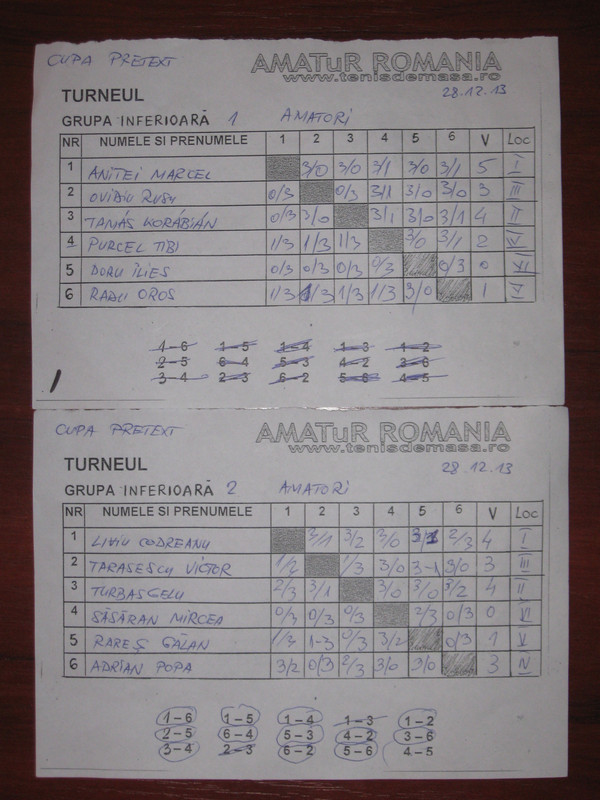 CUPA PRETEXT AMATuR ROMANIA
www.tenisdemasa.ro
TURNEUL 28.12.13
GRUPA INFERIOARĂ 1 AMATORI
NR NUMELE SI PRENUMELE 1 2 3 4 5 6 V Loc
1 ANIȚEI MARCEL 3/0 3/0 3/1 3/0 3/1 5 I
2 OVIDIU RUSU 0/3 0/3 3/1 3/0 3/0 3 III
3 TAMÁS KORÁBIÁN 0/3 3/0 3/1 3/0 3/1 4 II
4 PURCEL TIBI 1/3 1/3 1/3 3/0 3/1 2 IV
5 DORU ILIES 0/3 0/3 0/3 0/3 0/3 0 VI
6 RADU OROS 1/3 1/3 1/3 1/3 3/0 1 V
1-6 1-5 1-4 1-3 1-2
2-5 6-4 5-3 4-2 3-6
3-4 2-3 6-2 5-6 4-5
CUPA PRETEXT AMATuR ROMANIA
www.tenisdemasa.ro
TURNEUL 28.12.13
GRUPA INFERIOARĂ 2 AMATORI
NR NUMELE SI PRENUMELE 1 2 3 4 5 6 V Loc
1 LIVIU CODREANU 3/1 3/2 3/0 3/1 2/3 4 I
2 TARASESCU VICTOR 1/3 3/0 3-1 3/0 3 III
3 TURBASGELU 2/3 3/1 3/0 3/0 3/2 4 II
4 SĂSĂRAN MIRCEA 0/3 0/3 0/3 2/3 0/3 0 VI
5 RAREȘ GĂLAN 1/3 1-3 0/3 3/2 0/3 1 V
6 ADRIAN POPA 3/2 0/3 2/3 3/0 3/0 3 IV
1-6 1-5 1-4 1-3 1-2
2-5 6-4 5-3 4-2 3-6
3-4 2-3 6-2 5-6 4-5